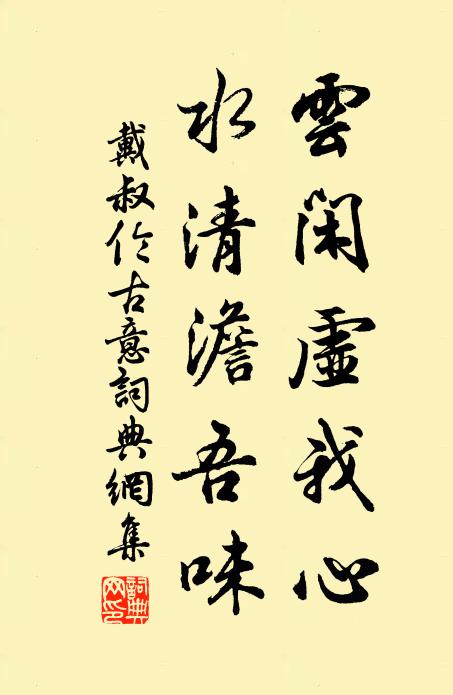 雲閑虛我心
水清澹吾味
戴叔伦古意詞典網集